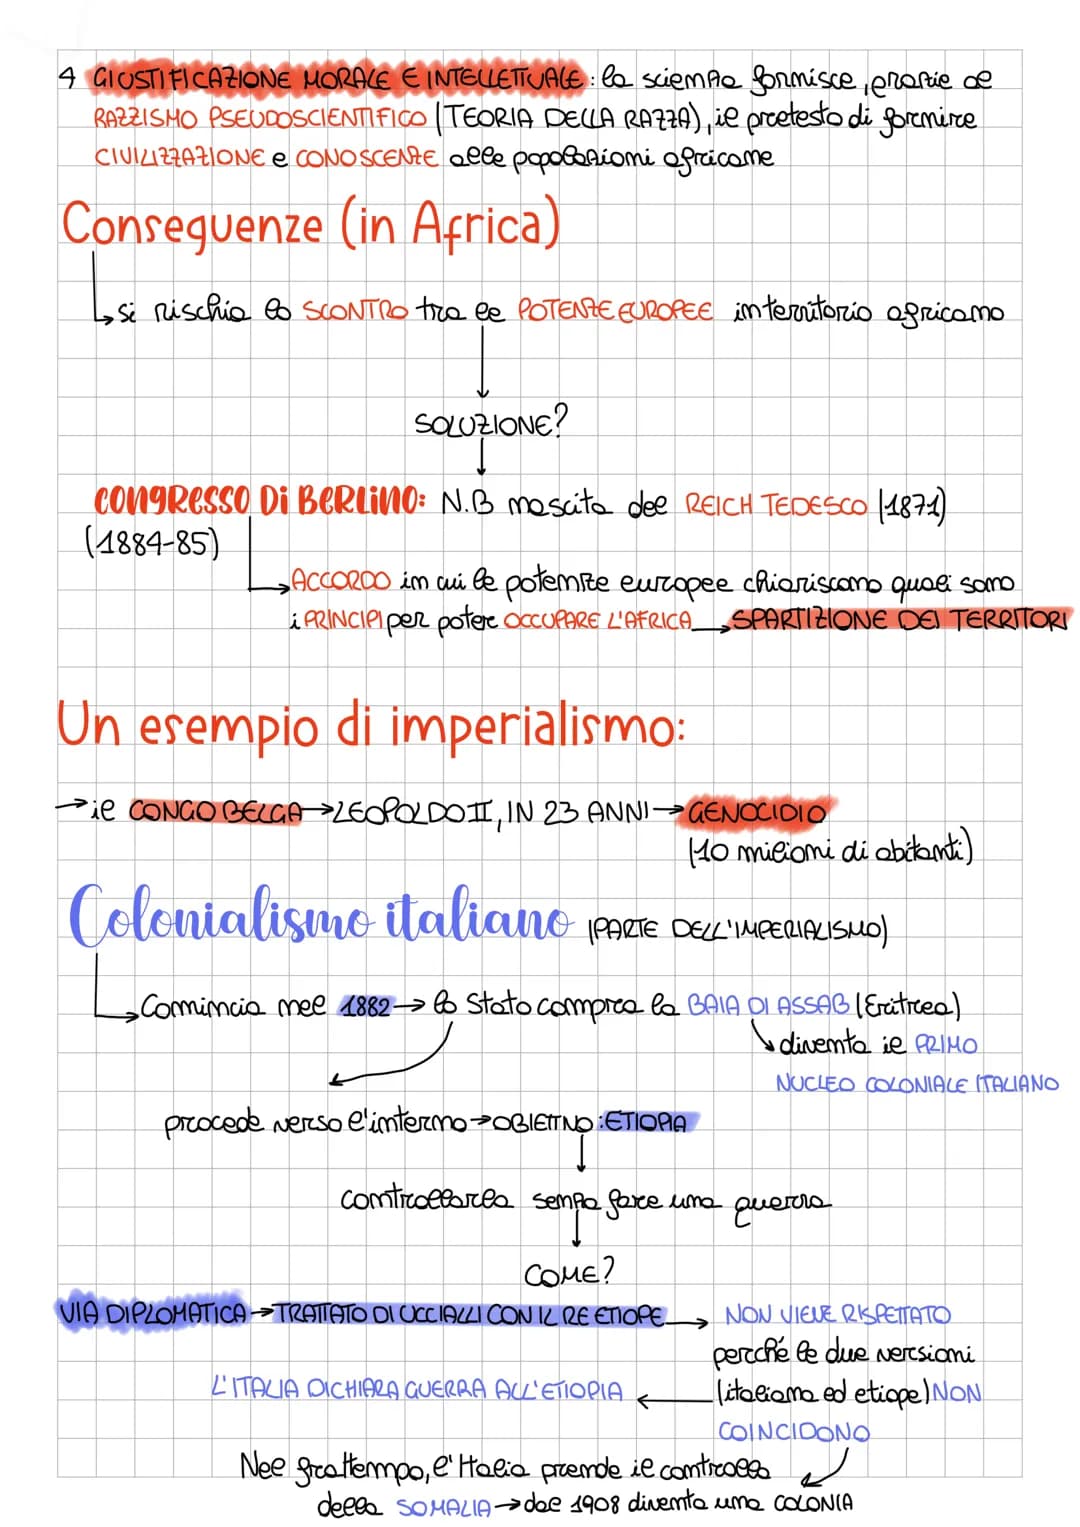 4 GIUSTIFICAZIONE MORALE E INTELLETTUALE: la scienza fornisce, grazie al
RAZZISMO PSEUDOSCIENTIFICO (TEORIA DELLA RAZZA), il pretesto di fornire
CIVILIZZAZIONE e CONOSCENZE alle popolazioni africane
Conseguenze (in Africa)
si rischia lo SCONTRO tra le POTENZE EUROPEE in territorio africano
SOLUZIONE?
CONGRESSO Di BERLINO: N.B nascita del REICH TEDESCO (1871)
(1884-85)
ACCORDO in cui le potenze europee chiariscono quali sono
i PRINCIPI per poter OCCUPARE L'AFRICA → SPARTIZIONE DEI TERRITORI
Un esempio di imperialismo:
→ il CONGO BELGA → LEOPOLDO II, IN 23 ANNI → GENOCIDIO
(10 milioni di abitanti)
Colonialismo italiano (PARTE DELL'IMPERIALISMO)
Comincia nel 1882 → lo Stato compra la BAIA DI ASSAB (Eritrea)
diventa il PRIMO
NUCLEO COLONIALE ITALIANO
procede verso l'interno → OBIETTIVO: ETIOPIA
controllarla senza fare una guerra
COME?
VIA DIPLOMATICA → TRATTATO DI UCCIALLI CON IL RE ETIOPE → NON VIENE RISPETTATO
perché le due versioni
(italiana ed etiope) NON
COINCIDONO
L'ITALIA DICHIARA GUERRA ALL'ETIOPIA
Nel frattempo, l'Italia prende il controllo
della SOMALIA → dal 1908 diventa una COLONIA